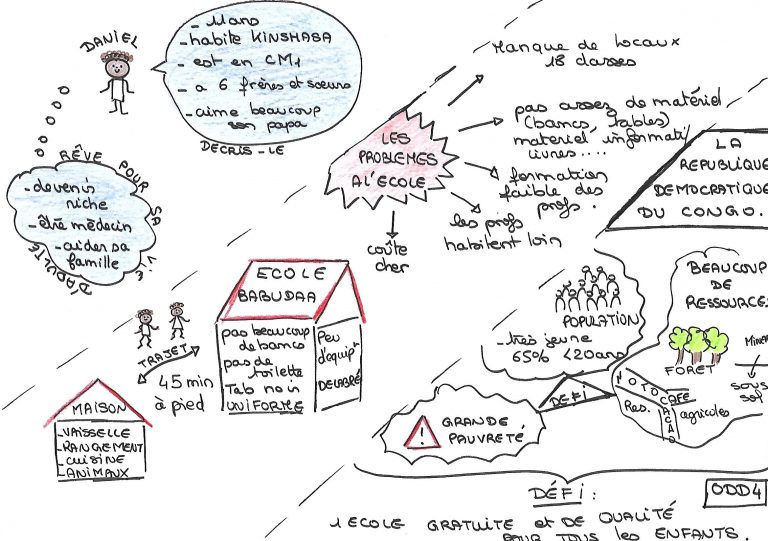 DANIEL
- 11 ans
- habite KINSHASA
- est en CM1
- a 6 frères et soeurs
- aime beaucoup
son papa
DECRIS-LE
RÊVE POUR SA VIE D'ADULTE
- devenir
riche
- être médecin
- aider sa
famille
LES
PROBLEMES
A L'ECOLE
Manque de locaux
18 classes
pas assez de matériel
(bancs, tables)
matériel informati
livres....
formation
faible des
profs.
les profs
habitent loin
coûte
cher
LA
REPUBLIQUE
DEMOCRATIQUE
DU CONGO.
ECOLE
BABUDAA
pas beaucoup
de bancs
pas de
toilette
Tab noir
UNIFORME
Peu
d'équipt
DELABRÉ
TRAJET
45 min
à pied
MAISON
- VAISSELLE
- RANGEMENT
- CUISINE
- ANIMAUX
POPULATION
- très jeune
65% <20ans
BEAUCOUP
DE
RESSOURCES
FORET
Miner
sous
sol
Res. agricoles
CAFE
CACAO
DEFI
GRANDE
PAUVRETÉ
!
DÉFI :
ODD4
1 ECOLE GRATUITE et DE QUALITÉ
POUR TOUS les ENFANTS.